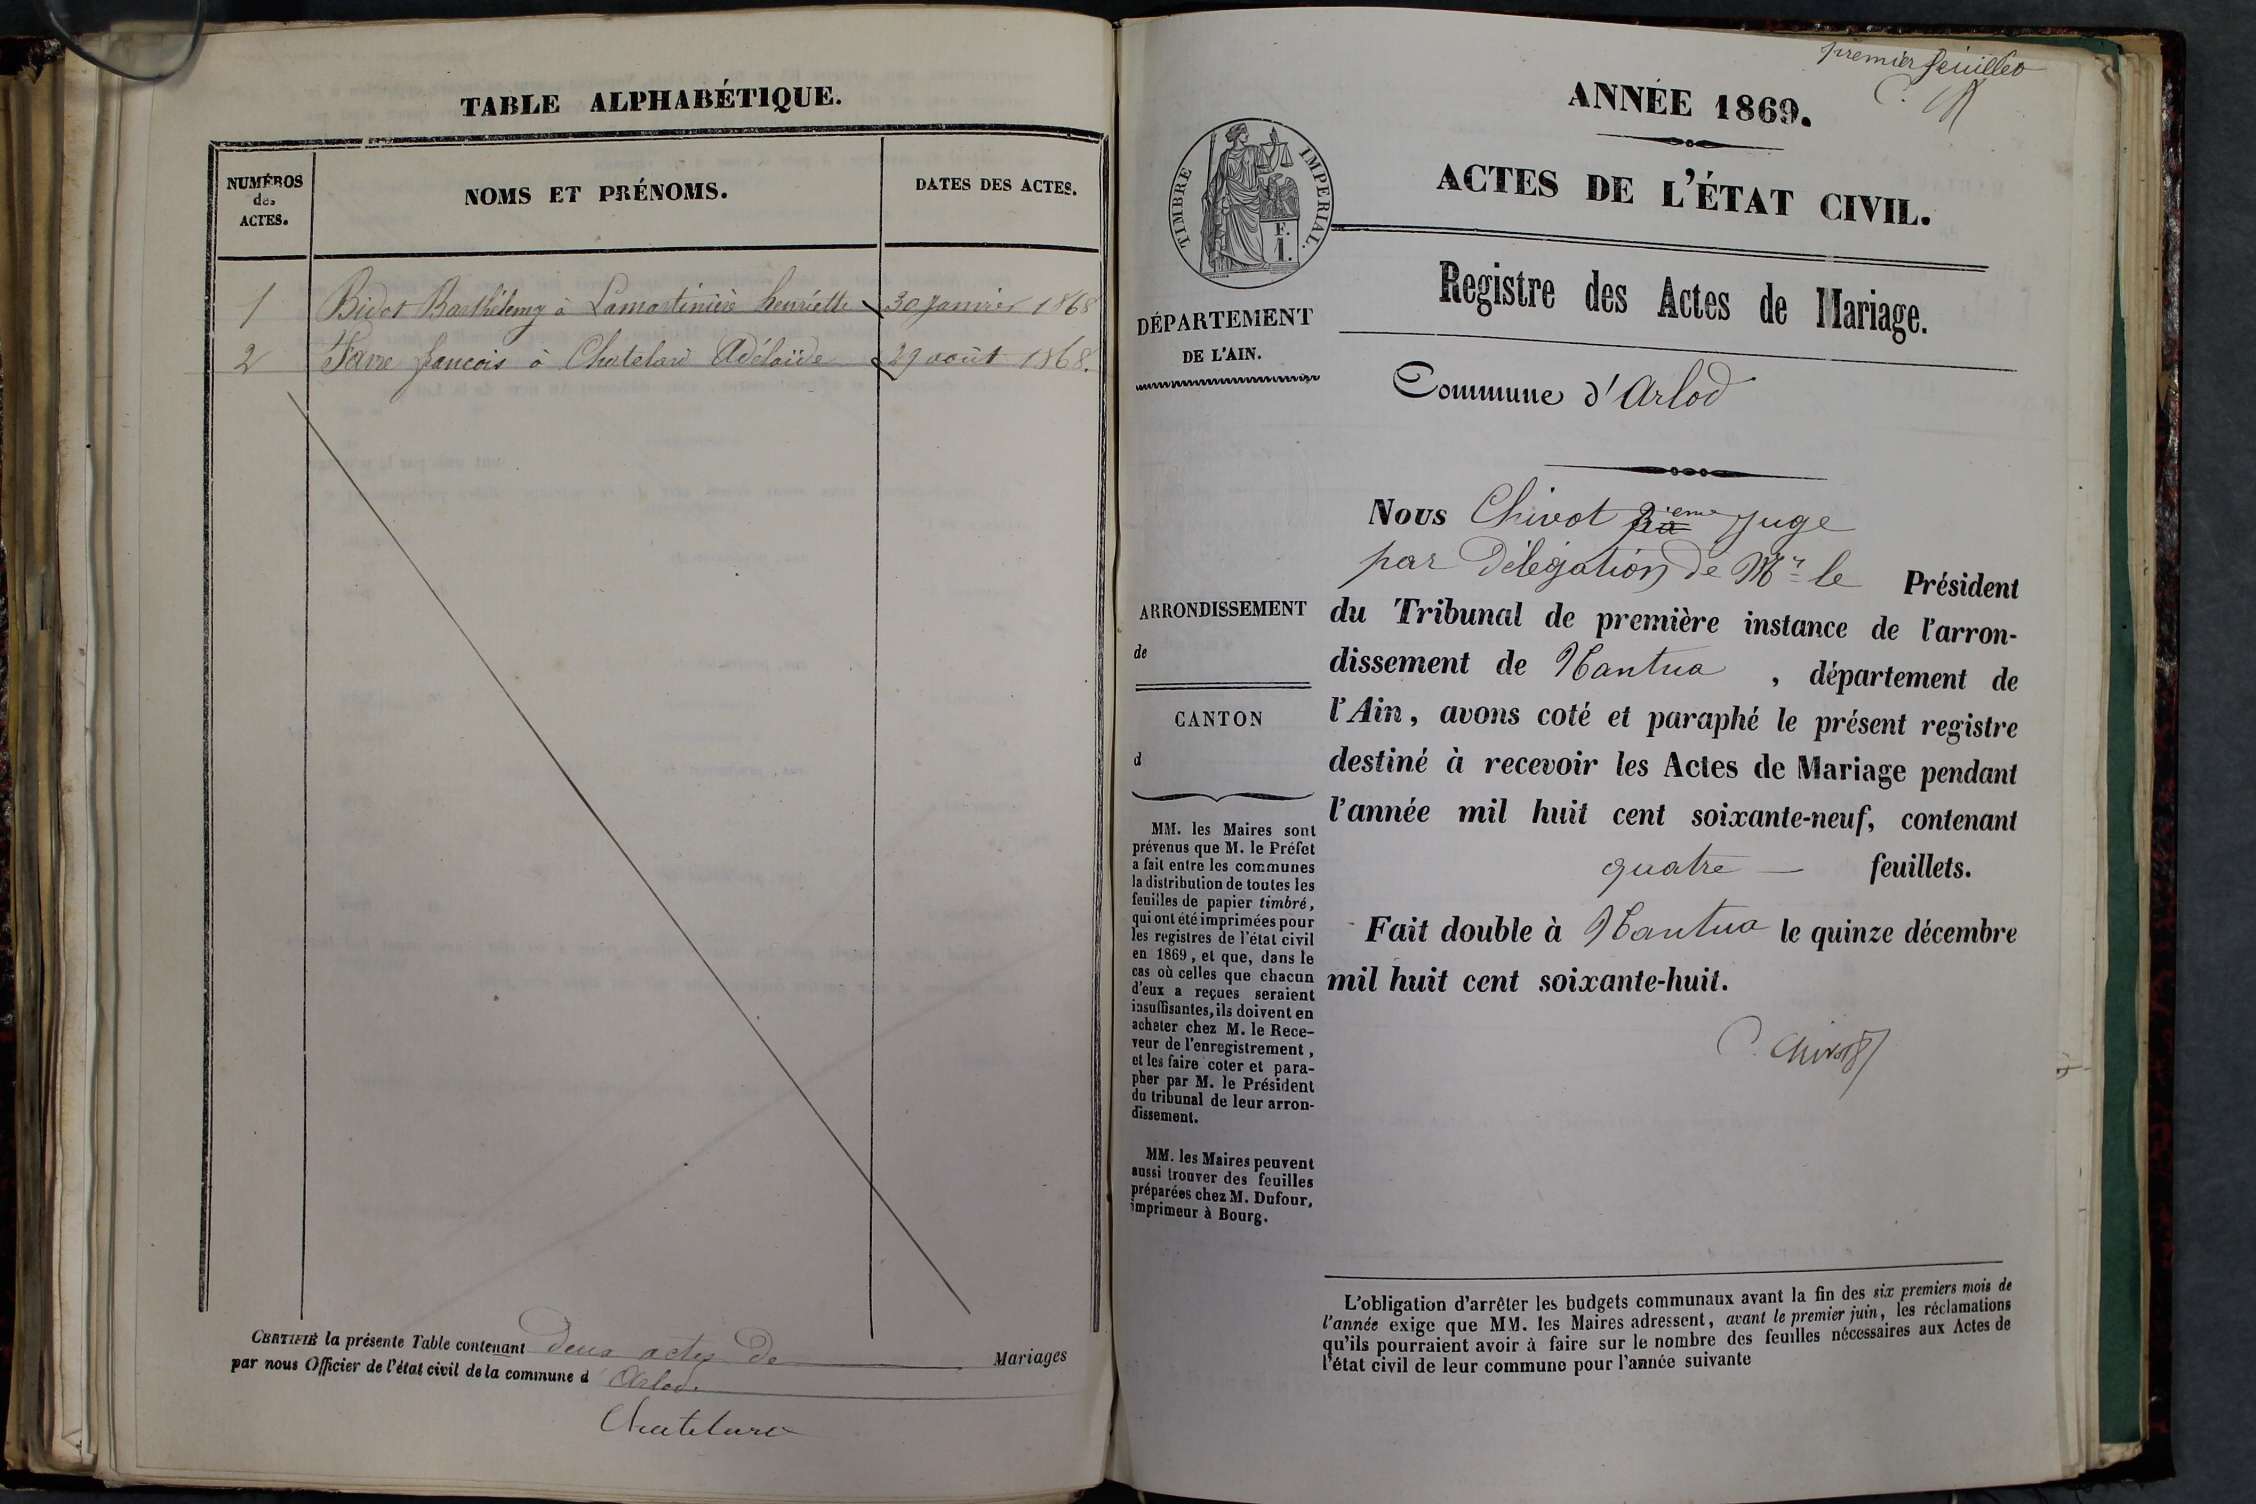 TABLE ALPHABÉTIQUE.
NUMÉROS
des
ACTES.
NOMS ET PRÉNOMS.
DATES DES ACTES.
1 Bidot Barthélemy à Lamartinière henriette 30 janvier 1868
2 Favre françois à Chatelard Adélaïde 29 août 1868.
CERTIFIÉ la présente Table contenant deux actes de Mariages
par nous Officier de l'état civil de la commune d Arlod.
Chatelard
premier feuillet
ANNÉE 1869.
TIMBRE IMPERIAL.
F.
1.
ACTES DE L'ÉTAT CIVIL.
Registre des Actes de Mariage.
DÉPARTEMENT
DE L'AIN.
Commune d'Arlod
Nous Chivot 2ieme Juge
par Délégation de Mr le Président
du Tribunal de première instance de l'arron-
dissement de Nantua, département de
l'Ain, avons coté et paraphé le présent registre
destiné à recevoir les Actes de Mariage pendant
l'année mil huit cent soixante-neuf, contenant
quatre feuillets.
Fait double à Nantua le quinze décembre
mil huit cent soixante-huit.
C. Chivot
ARRONDISSEMENT
de
CANTON
d
MM. les Maires sont
prévenus que M. le Préfet
a fait entre les communes
la distribution de toutes les
feuilles de papier timbré,
qui ont été imprimées pour
les registres de l'état civil
en 1869, et que, dans le
cas où celles que chacun
d'eux a reçues seraient
insuffisantes, ils doivent en
acheter chez M. le Rece-
veur de l'enregistrement,
et les faire coter et para-
pher par M. le Président
du tribunal de leur arron-
dissement.
MM. les Maires peuvent
aussi trouver des feuilles
préparées chez M. Dufour,
imprimeur à Bourg.
L'obligation d'arrêter les budgets communaux avant la fin des six premiers mois de
l'année exige que MM. les Maires adressent, avant le premier juin, les réclamations
qu'ils pourraient avoir à faire sur le nombre des feuilles nécessaires aux Actes de
l'état civil de leur commune pour l'année suivante